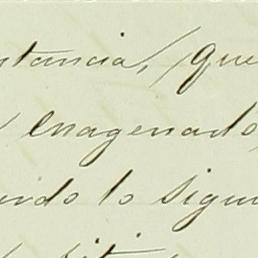 stancia, que
enagenado
endo lo sigui